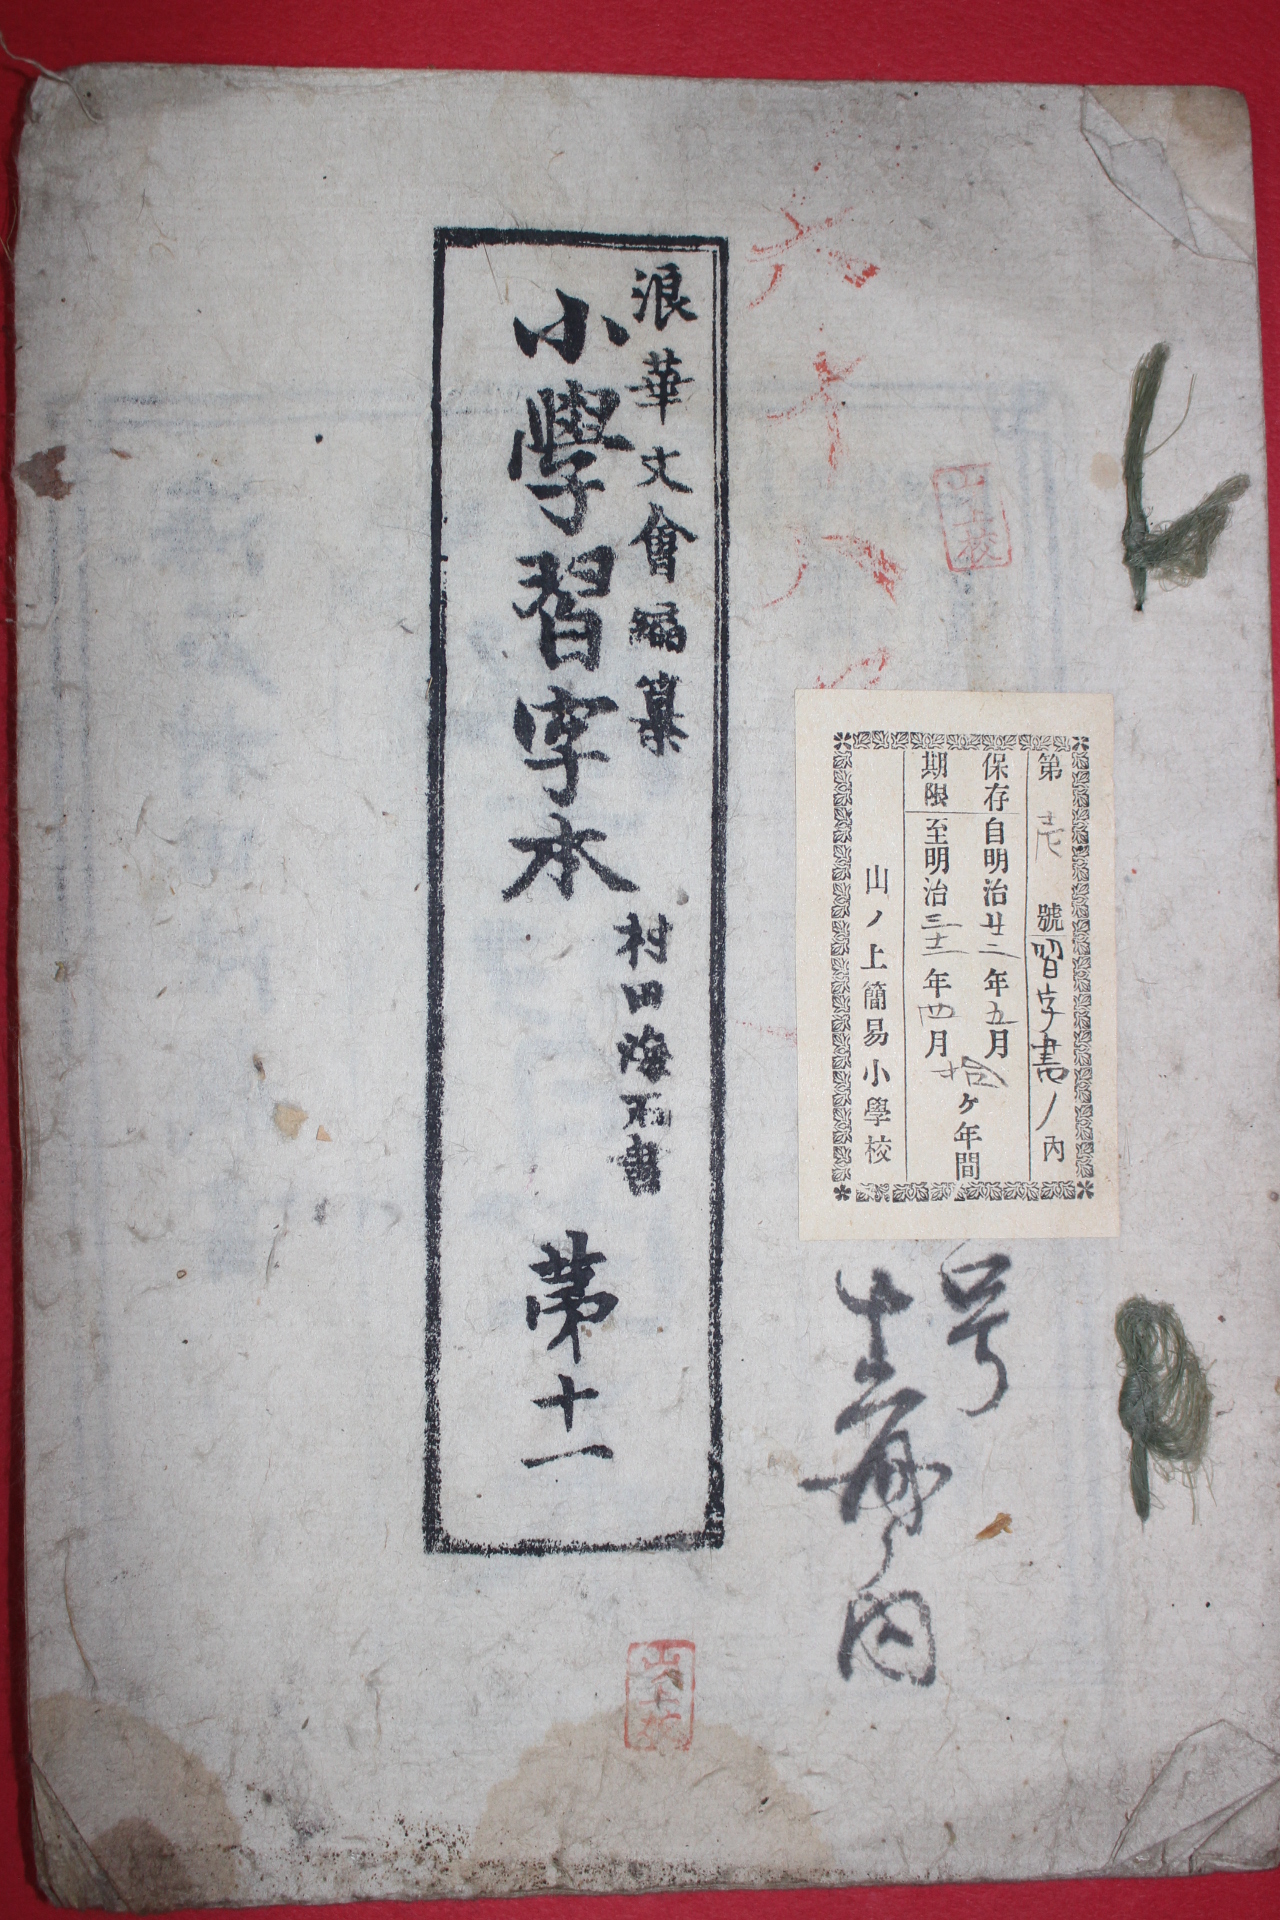 六十八号
山上校
第壱號習字書ノ內
保存自明治廿二年五月
期限至明治三十二年四月
拾ケ年間
山ノ上簡易小學校
号
内
浪華文會編纂
小學習字本 第十一
村田海石書
山上校